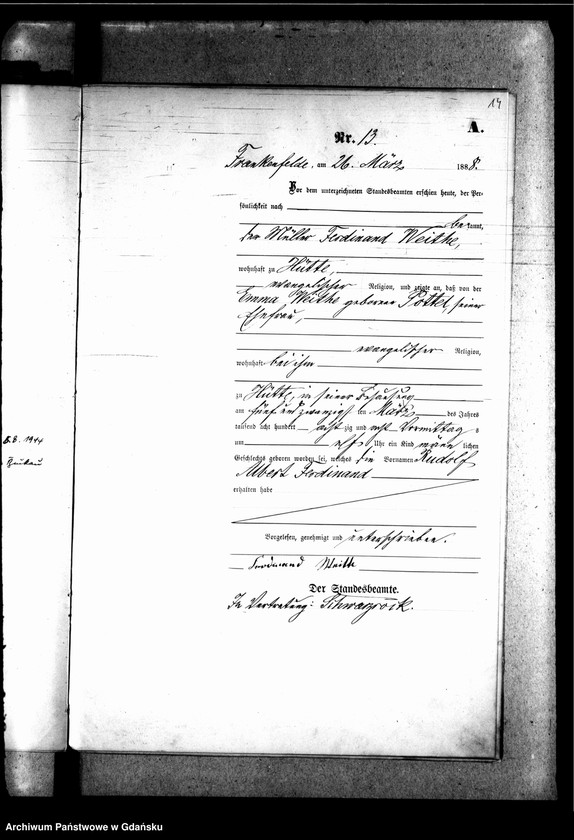 14
A.
Nr. 13.
Frankenfelde, am 26. März 1888.
Vor dem unterzeichneten Standesbeamten erschien heute, der Per-
sönlichkeit nach
bekannt,
der Müller Ferdinand Weithe,
wohnhaft zu Hütte,
evangelischer Religion, und zeigte an, daß von der
Emma Weithe geborenen Pottel, seiner
Ehefrau,
evangelischer Religion,
wohnhaft bei ihm
zu Hütte, in seiner Behausung
am fünf und zwanzigsten März des Jahres
tausend acht hundert achtzig und acht Vormittags
um elf Uhr ein Kind männlichen
Geschlechts geboren worden sei, welches die Vornamen Rudolf
Albert Ferdinand
erhalten habe
Vorgelesen, genehmigt und unterschrieben.
Ferdinand Weithe
Der Standesbeamte.
In Vertretung: Schwagrock.
8. 1944
Archiwum Państwowe w Gdańsku